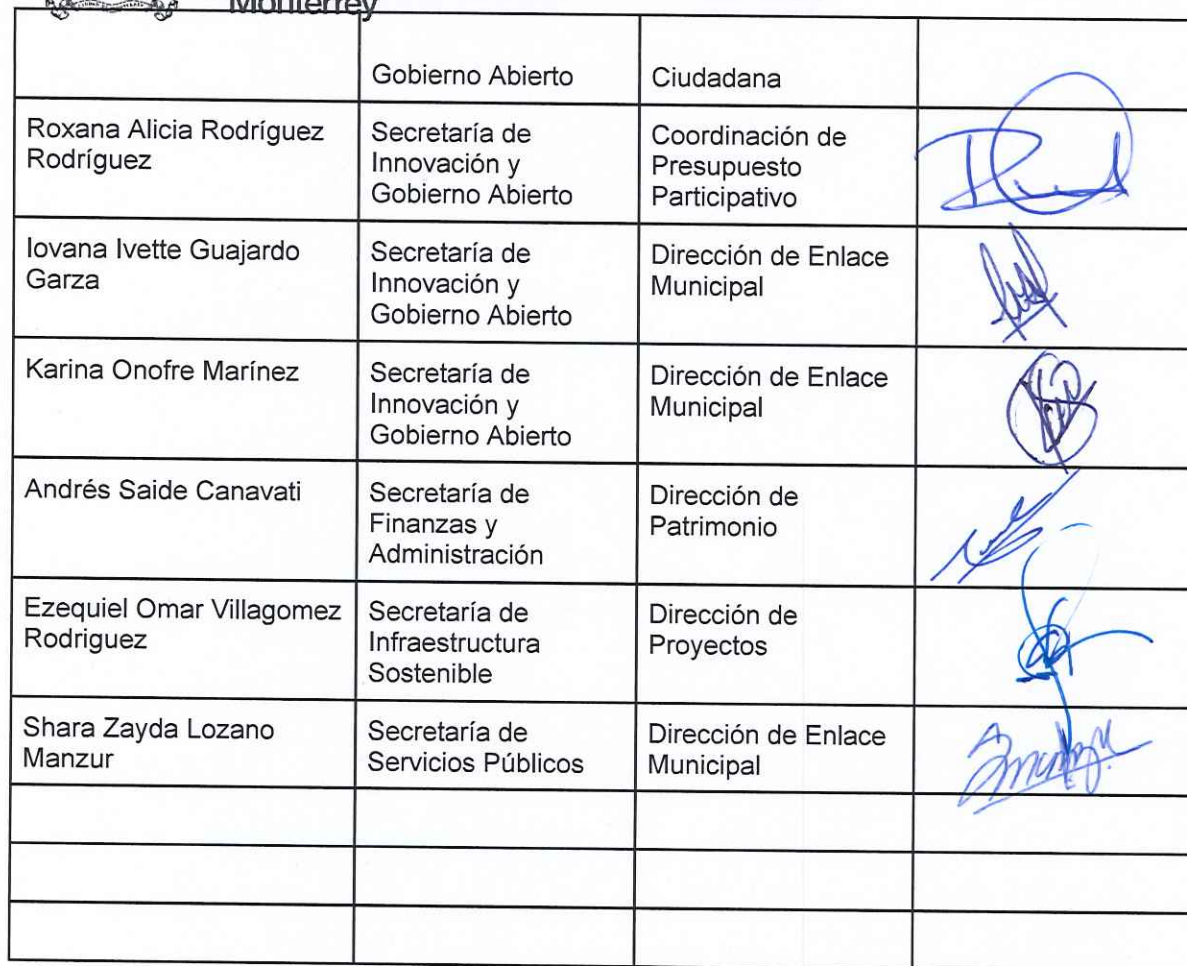 Monterrey
Gobierno Abierto
Ciudadana
Roxana Alicia Rodríguez
Rodríguez
Secretaría de
Innovación y
Gobierno Abierto
Coordinación de
Presupuesto
Participativo
Iovana Ivette Guajardo
Garza
Secretaría de
Innovación y
Gobierno Abierto
Dirección de Enlace
Municipal
Karina Onofre Marínez
Secretaría de
Innovación y
Gobierno Abierto
Dirección de Enlace
Municipal
Andrés Saide Canavati
Secretaría de
Finanzas y
Administración
Dirección de
Patrimonio
Ezequiel Omar Villagomez
Rodriguez
Secretaría de
Infraestructura
Sostenible
Dirección de
Proyectos
Shara Zayda Lozano
Manzur
Secretaría de
Servicios Públicos
Dirección de Enlace
Municipal